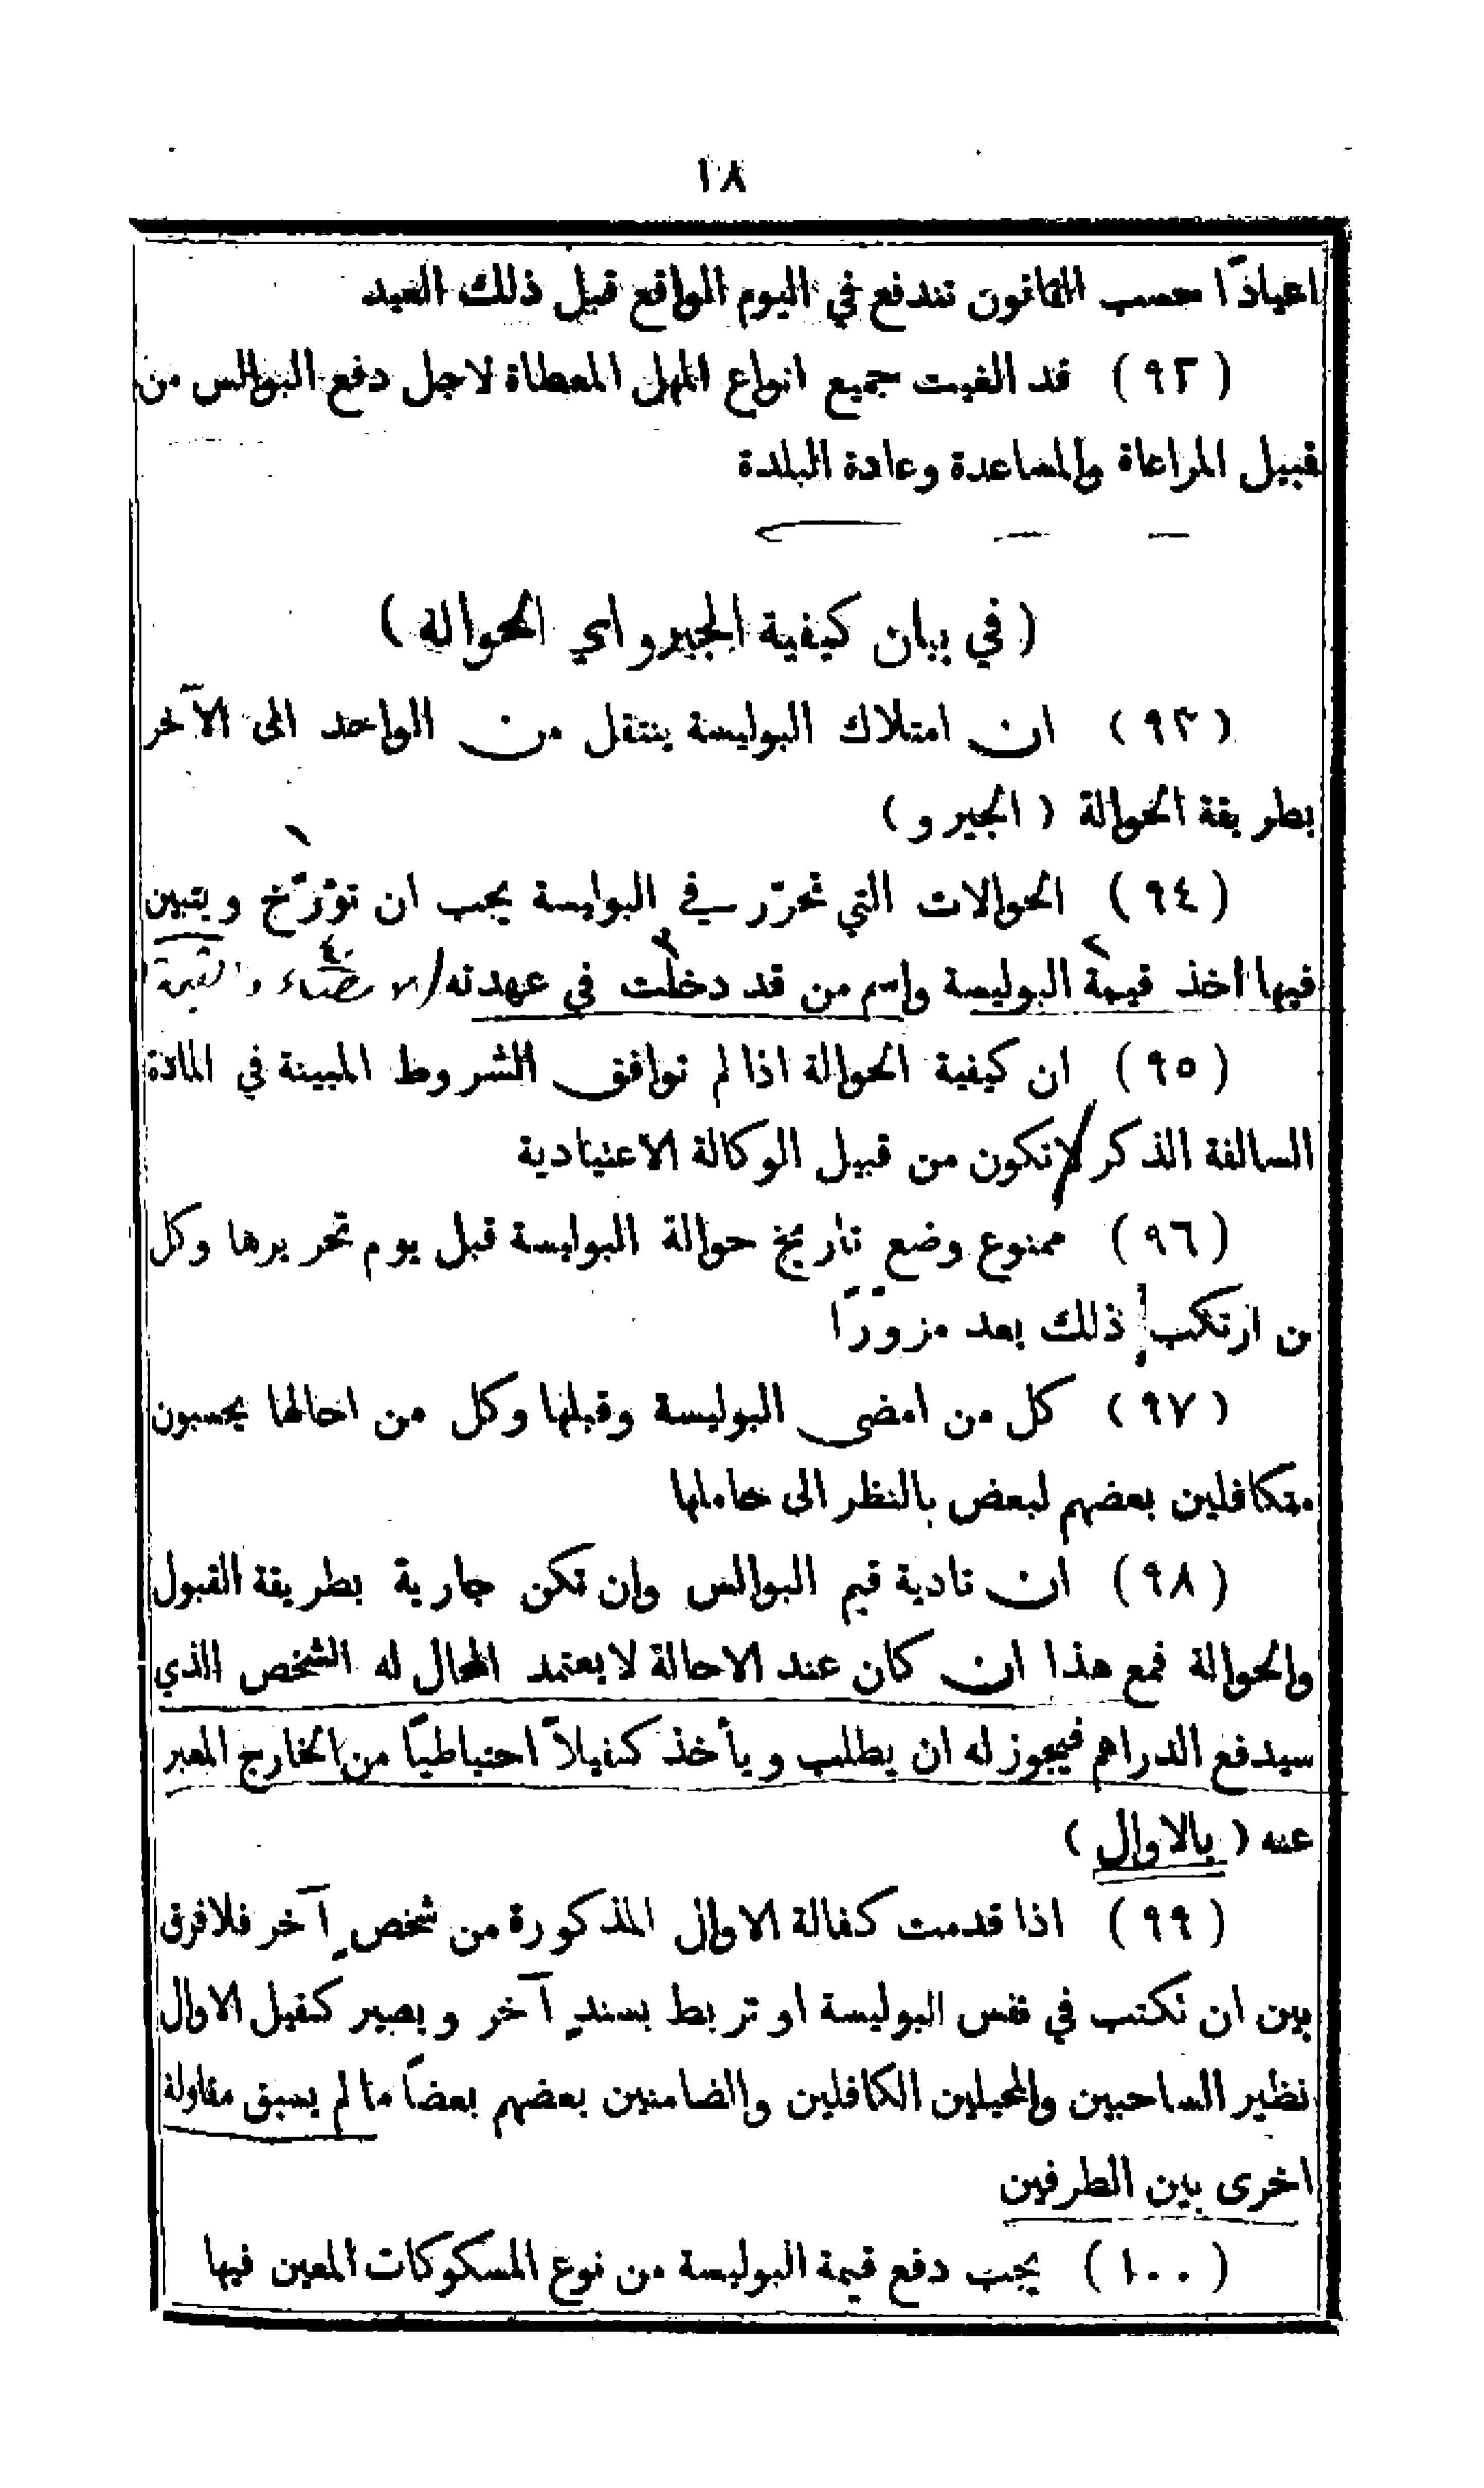 ١٨
اعيادًا حسب القانون تندفع في اليوم الواقع قبل ذلك العيد
(٩٢) قد الغيت جميع انواع المهل المعطاة لاجل دفع البوالس من
قبيل المراعاة والمساعدة وعادة البلدة
(في بيان كيفية الجيرو اي الحوالة)
(٩٣) ان امتلاك البوليسة ينتقل من الواحد الى الآخر
بطريقة الحوالة (الجيرو)
(٩٤) الحوالات التي تحرّر في البوليسة يجب ان تؤرّخ ويتبين
فيها اخذ قيمة البوليسة واسم من قد دخلت في عهدته / الامضاء و
(٩٥) ان كيفية الحوالة اذا لم توافق الشروط المبينة في المادة
السالفة الذكر لا تكون من قبيل الوكالة الاعتيادية
(٩٦) ممنوع وضع تاريخ حوالة البوليسة قبل يوم تحريرها وكل
من ارتكب ذلك يعد مزورًا
(٩٧) كل من امضى البوليسة وقبلها وكل من احالها يحسبون
متكافلين بعضهم لبعض بالنظر الى حاملها
(٩٨) ان تادية قيم البوالس وان تكن جارية بطريقة القبول
والحوالة فمع هذا ان كان عند الاحالة لا يعتمد المحال له الشخص الذي
سيدفع الدراهم فيجوز له ان يطلب ويأخذ كفيلاً احتياطيًا من الخارج المعبر
عنه (بالاوال)
(٩٩) اذا قدمت كفالة الاوال المذكورة من شخصٍ آخر فلا فرق
بين ان تكتب في نفس البوليسة او تربط بسندٍ آخر ويصير كفيل الاوال
نظير الساحبين والمحيلين الكافلين والضامنين بعضهم بعضًا ما لم يسبق مقاولة
اخرى بين الطرفين
(١٠٠) يجب دفع قيمة البوليسة من نوع المسكوكات المعين فيها